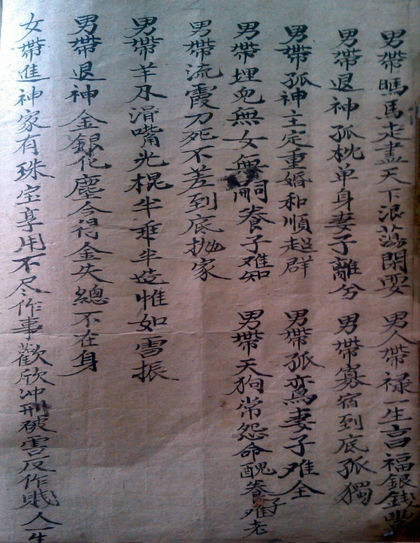 男帶駡馬走盡天下浪蕩閑耍 男人帶禄一生言福銀錢豐
男帶退神孤枕单身妻子離兮 男帶寡宿到底孤獨
男帶孤神主定重婚和順超群 男帶孤鸾妻子难全
男帶埋兒無女無嗣養子难知 男帶天狗常怨命醜養子难老
男帶流霞刀死不差到底抛家
男帶羊刃滑嘴光棍半乖半 惟如雪振
男帶退神金銀化塵 金失總不在身
女帶進神家有珠宝享用不尽作事歡欣冲刑破害反作贱人一生